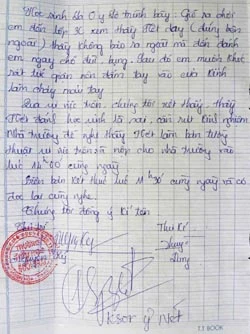 Học sinh Sô Ô y Sô trình bày: Giờ ra chơi
em đến lớp 3C xem thầy Tết dạy (đứng bên
ngoài), thầy không bảo ra ngoài mà đến đánh
em ngay chỗ đứng. Sau đó em muốn khóc
rất tức giận nên đấm tay vào cửa kính
làm chảy máu tay.
Qua sự việc trên, chúng tôi xét thấy, thầy
Tết đánh học sinh là sai, cần rút kinh nghiệm
Nhà trường đề nghị thầy Tết làm bản tường
thuật sự việc trên và nộp cho nhà trường vào
lúc 14h00 cùng ngày
Biên bản kết thúc lúc 11h30 cùng ngày và có
đọc lại cùng nghe.
Chúng tôi đồng ý kí tên
Thư kí
Ksor y Nét
T.T BOOK